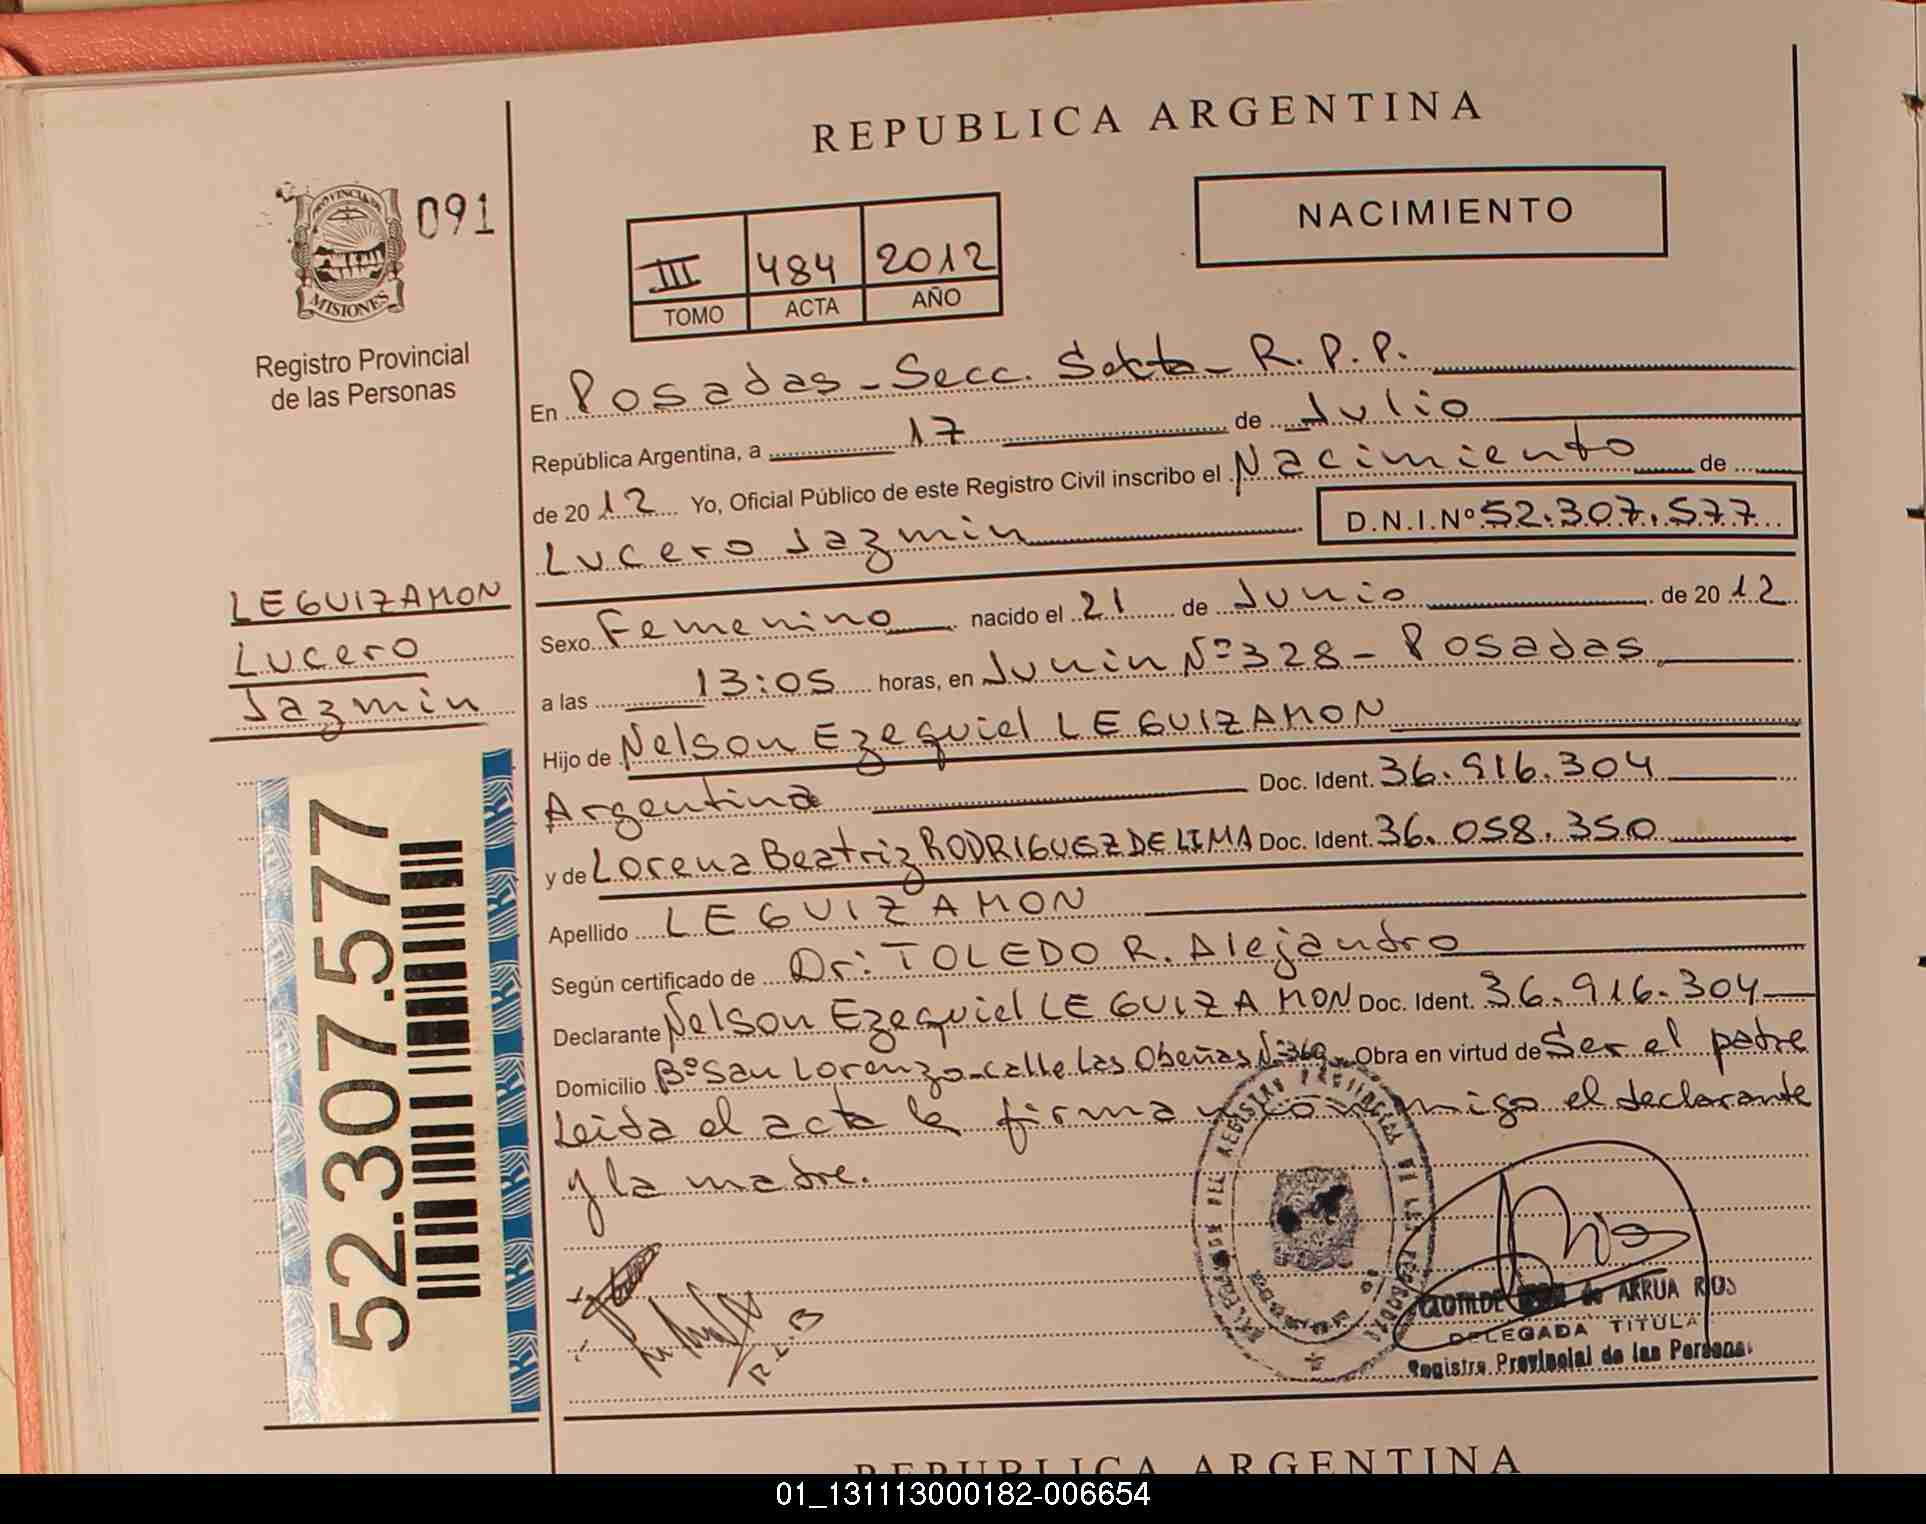 REPUBLICA ARGENTINA
PROVINCIA DE
MISIONES
091
Registro Provincial
de las Personas
NACIMIENTO
III 484 2012
TOMO ACTA AÑO
En Posadas - Secc. Sexta - R.P.P.
República Argentina, a 17 de Julio
de 2012 Yo, Oficial Público de este Registro Civil inscribo el Nacimiento de
Lucero Jazmin D.N.I.Nº 52.307.577
LEGUIZAMON
Lucero
Jazmin
Sexo Femenino nacido el 21 de Junio de 2012
a las 13:05 horas, en Junin Nº 328 - Posadas
Hijo de Nelson Ezequiel LEGUIZAMON
Argentina Doc. Ident. 36.916.304
y de Lorena Beatriz RODRIGUEZ DE LIMA Doc. Ident. 36.058.350
Apellido LEGUIZAMON
Según certificado de Dr: TOLEDO R. Alejandro
Declarante Nelson Ezequiel LEGUIZAMON Doc. Ident. 36.916.304
Domicilio Bº San Lorenzo - Calle Las Obeñas Nº 369 - Obra en virtud de Ser el padre
Leida el acta la firma y con migo el declarante
y la madre.
52.307.577
R L B
DEL REGISTRO PROVINCIAL DE LAS PERSONAS
CLOTILDE de ARRUA RIOS
DELEGADA TITULAR
Registro Provincial de las Personas
REPUBLICA ARGENTINA
01_131113000182-006654